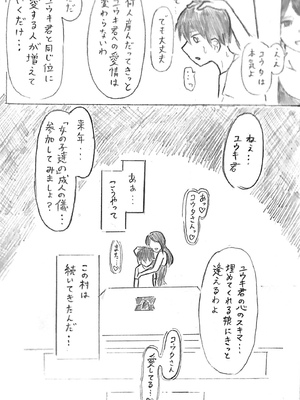 でも
コウタは
本気よ
・・・っ
ても大丈夫
何人産んだってきっと
ユウキ君への愛情は
変わらないわ
ユウキ君と同じ位に
愛する人が増えて
いくだけ・・・
ねぇ・・・
ユウキ君
ユウキ君の心のスキマ・・・
埋めてくれる娘にきっと
逢えるわよ
来年・・・
「女の子達」の成人の儀・・・
参加してみましょ？
あぁ・・・
こうやって
あっ♡
コウタさん♡
この村は
続いてきたんだ・・・
コウタさん
愛してる・・・